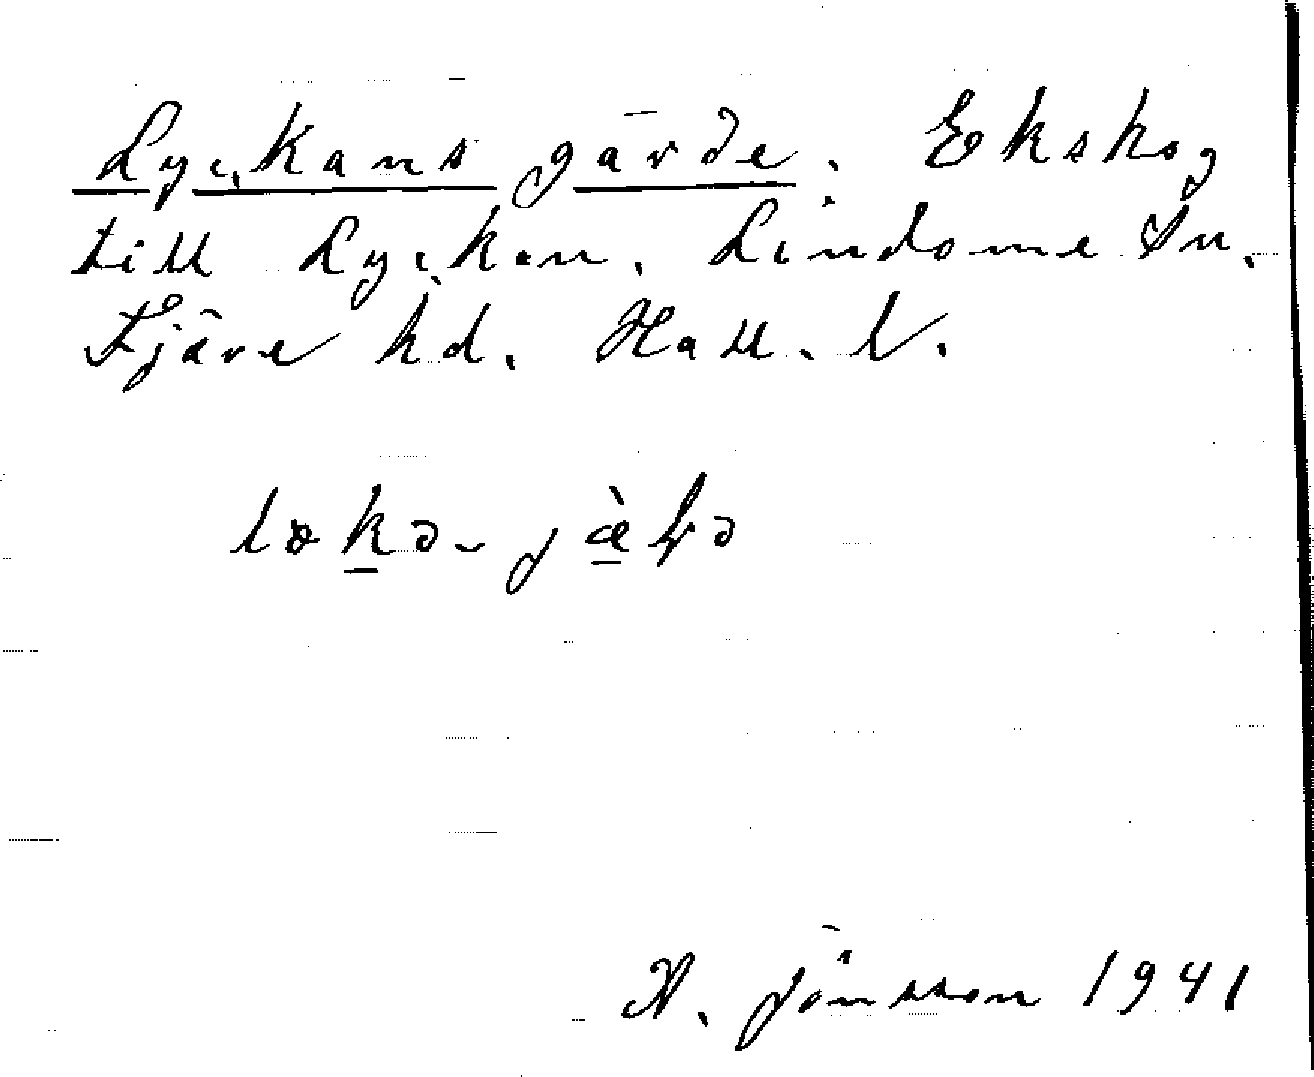 Lyckans gärde. Ekskog
till Lyckan. Lindome Sn.
Fjäre hd. Hall. l.
A. Jönsson 1941